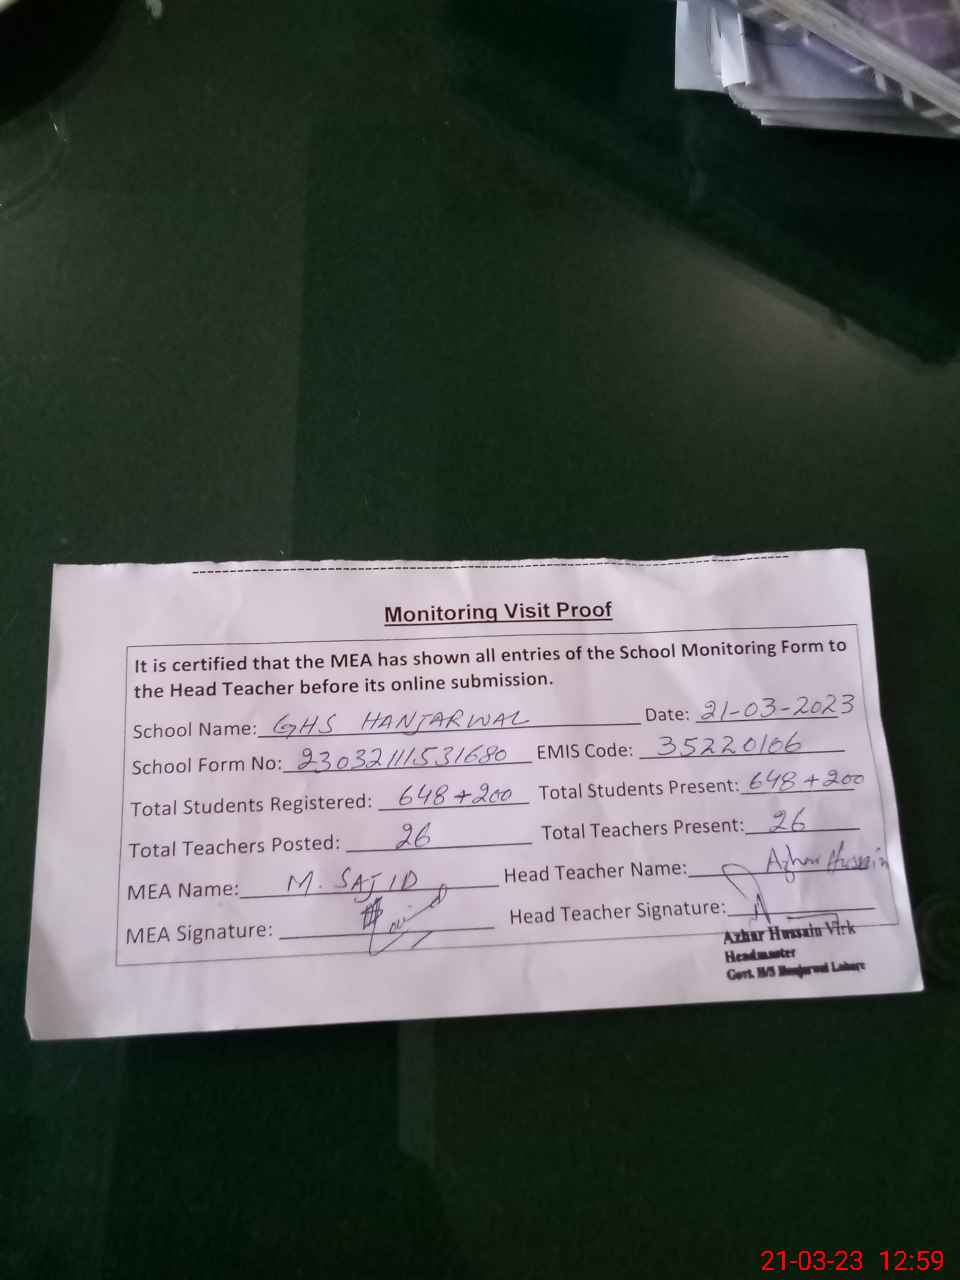 Monitoring Visit Proof
It is certified that the MEA has shown all entries of the School Monitoring Form to
the Head Teacher before its online submission.
School Name: GHS HANJARWAL Date: 21-03-2023
School Form No: 230321111531680 EMIS Code: 35220106
Total Students Registered: 648+200 Total Students Present: 648+200
Total Teachers Posted: 26 Total Teachers Present: 26
MEA Name: M. SAJID Head Teacher Name: Azhar Hussain
MEA Signature: Head Teacher Signature:
Azhar Hussain Virk
Headmaster
Govt. H/S Hanjarwal Lahore
21-03-23 12:59